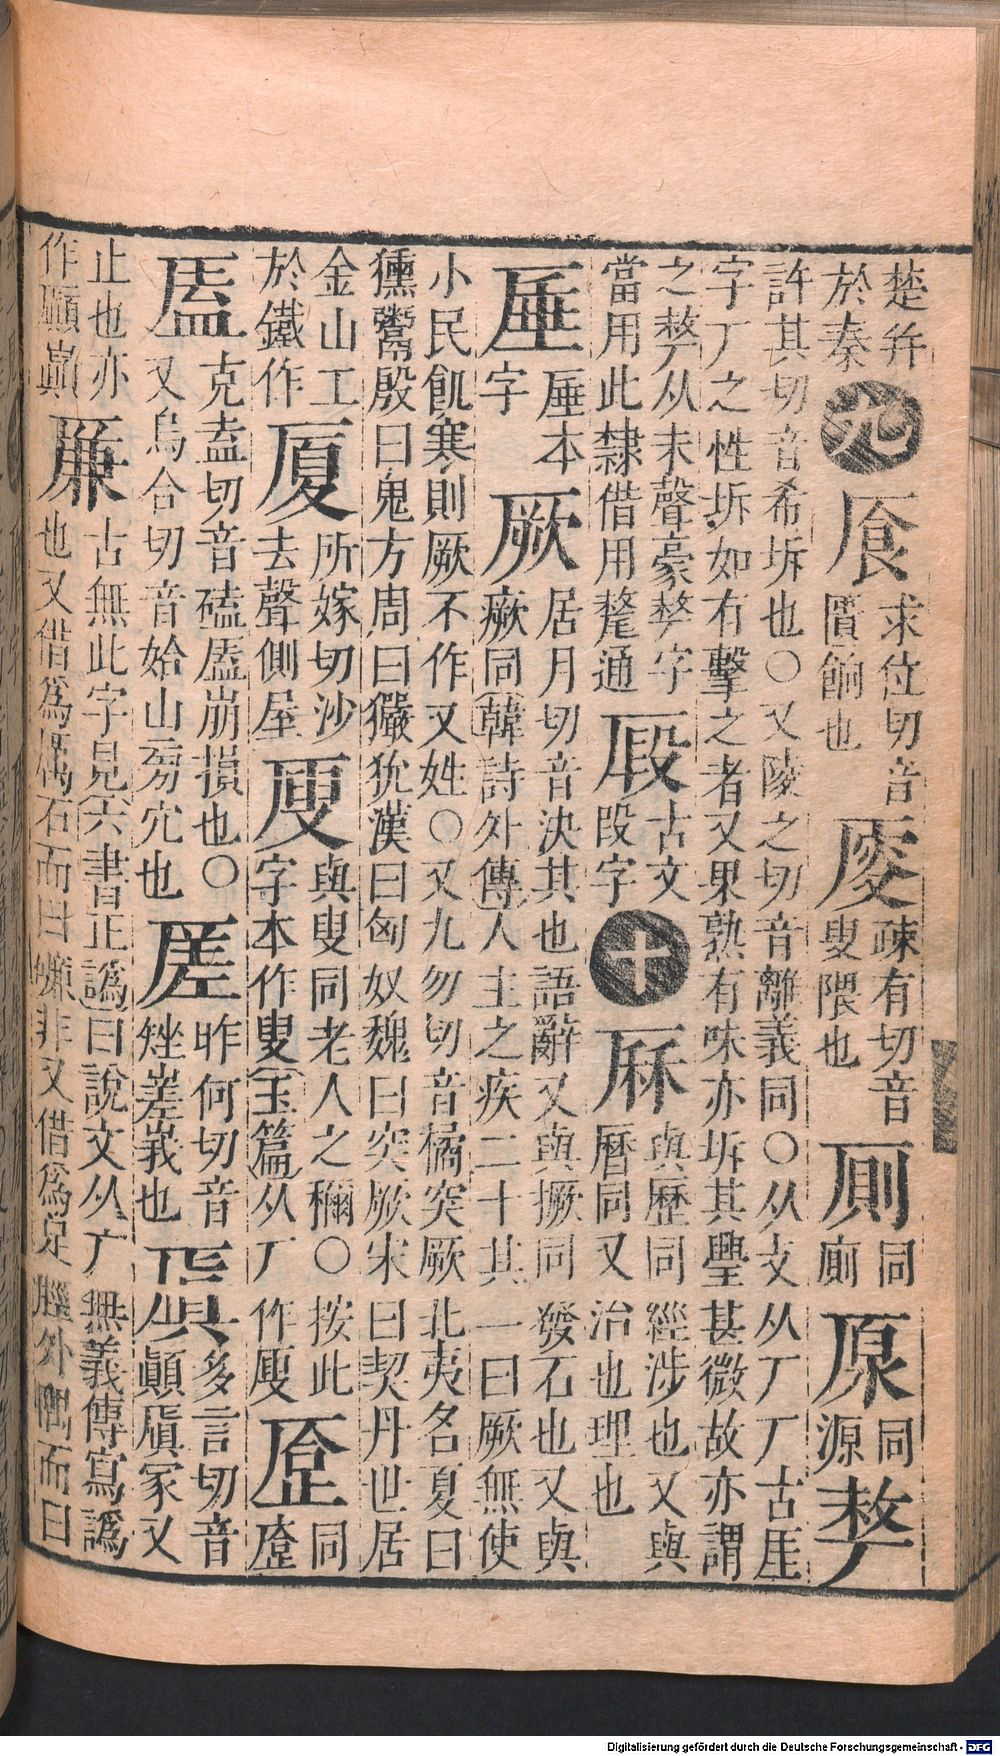 楚幷
於秦
九
⿸厂食
求位切音
匱餉也
⿸厂叟
疎有切音
叟隈也
厠
同
廁
厡
同
源
𠩺
許其切音希坼也○又陵之切音離義同○从攵从厂厂古厓
字厂之性坼如有擊之者又果熟有味亦坼其舋甚微故亦謂
之𠩺从未聲豪𠩺字
當用此隸借用氂通
⿸厂段
古文
段字
十
厤
與歷同經涉也又與
曆同又治也理也
厜
厜本
字
厥
居月切音決其也語辭又與撅同發石也又與
瘚同(韓詩外傳)人主之疾二十其一曰厥無使
小民飢寒則厥不作又姓○又九勿切音橘突厥北夷名夏曰
獯鬻殷曰鬼方周曰玁狁漢曰匈奴魏曰突厥宋曰契丹世居
金山工
於鐵作
厦
所嫁切沙
去聲側屋
⿸厂叟
與叟同老人之稱○按此
字本作叟(玉篇)从厂作
同
㕎
克盍切音磕㕎崩損也○
又烏合切音姶山旁穴也
㕐
昨何切音
矬㕐峩也
厧
多言切音
顚厧冢又
止也亦
作顚巓
⿸厂兼
古無此字見(六書正譌)曰說文从广無義傳寫譌
也又借為 石而曰 非又借為足脛外 而曰
Digitalisierung gefördert durch die Deutsche Forschungsgemeinschaft - DFG